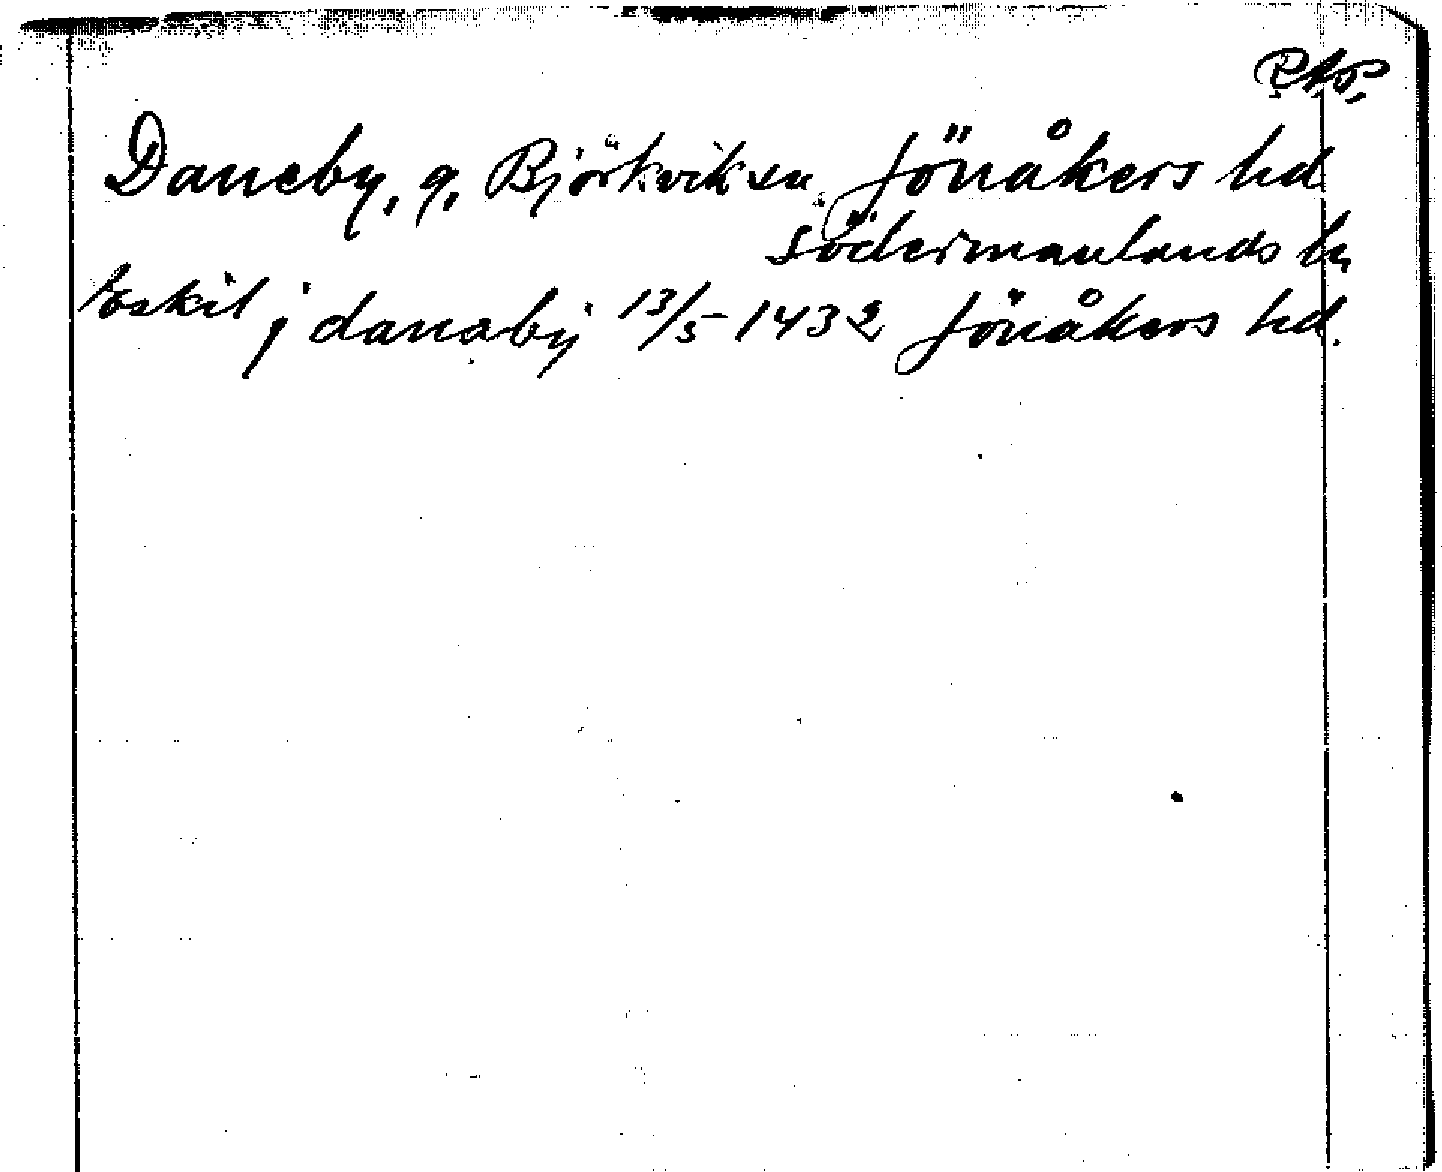 Daneby, g, Björkvik sn Jönåkers hd
Södermanlands ln
Eskil j danaby 13/5 1432 Jönåkers hd.